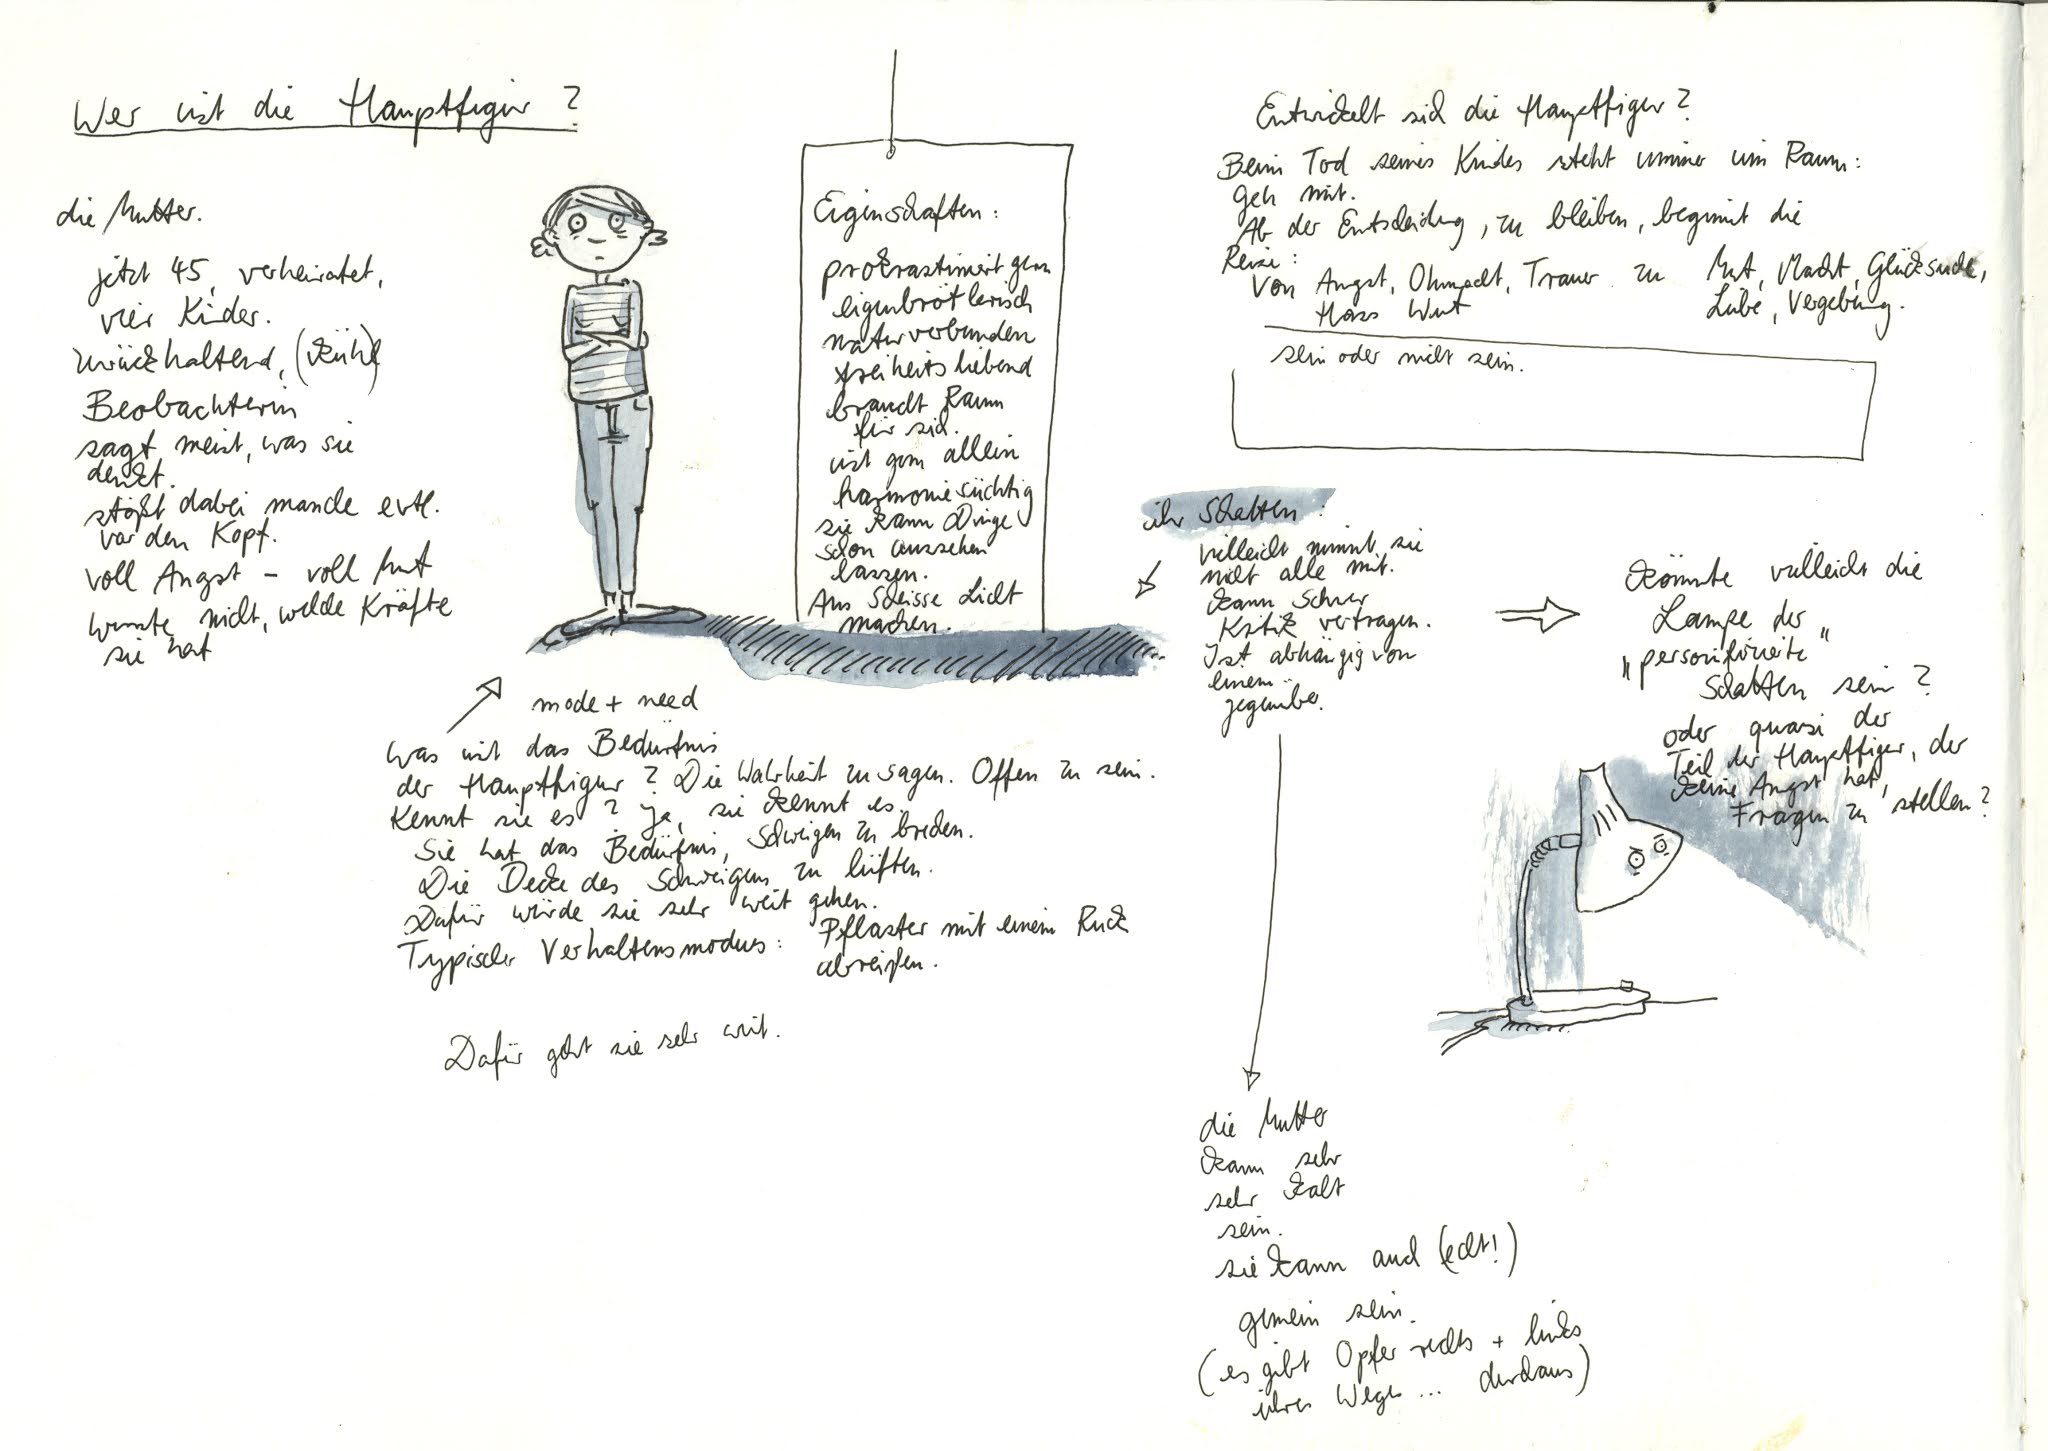 Wer ist die Hauptfigur?
die Mutter.
jetzt 45, verheiratet,
vier Kinder.
zurückhaltend, (kühl)
Beobachterin
sagt meist, was sie
denkt.
stößt dabei manche evtl.
vor den Kopf.
voll Angst – voll Mut
wusste nicht, welche Kräfte
sie hat
Eigenschaften:
prokrastiniert gern
eigenbrötlerisch
naturverbunden
freiheitsliebend
braucht Raum
für sich.
ist gern allein
harmoniesüchtig
sie kann Dinge
schön aussehen
lassen.
Aus Scheisse Licht
machen.
mode + need
Was ist das Bedürfnis
der Hauptfigur? Die Wahrheit zu sagen. Offen zu sein.
Kennt sie es? Ja, sie kennt es.
Sie hat das Bedürfnis, Schweigen zu brechen.
Die Decke des Schweigens zu lüften.
Dafür würde sie sehr weit gehen.
Typischer Verhaltensmodus: Pflaster mit einem Ruck
abreißen.
Dafür geht sie sehr weit.
Entwickelt sich die Hauptfigur?
Beim Tod seines Kindes steht immer im Raum:
Geh mit.
Ab der Entscheidung, zu bleiben, beginnt die
Reise:
Von Angst, Ohnmacht, Trauer zu Mut, Macht, Glücksuche,
Hass Wut Liebe, Vergebung.
sein oder nicht sein.
ihr Schatten:
vielleicht nimmt sie
nicht alle mit.
Kann schwer
Kritik vertragen.
Ist abhängig von
einem
gegenüber.
Könnte vielleicht die
Lampe der
„personifizierte"
Schatten sein?
oder quasi der
Teil der Hauptfigur, der
keine Angst hat,
Fragen zu stellen?
die Mutter
kann sehr
sehr kalt
sein.
sie kann auch (echt!)
gemein sein.
(es gibt Opfer rechts + links
ihres Weges ... durchaus)